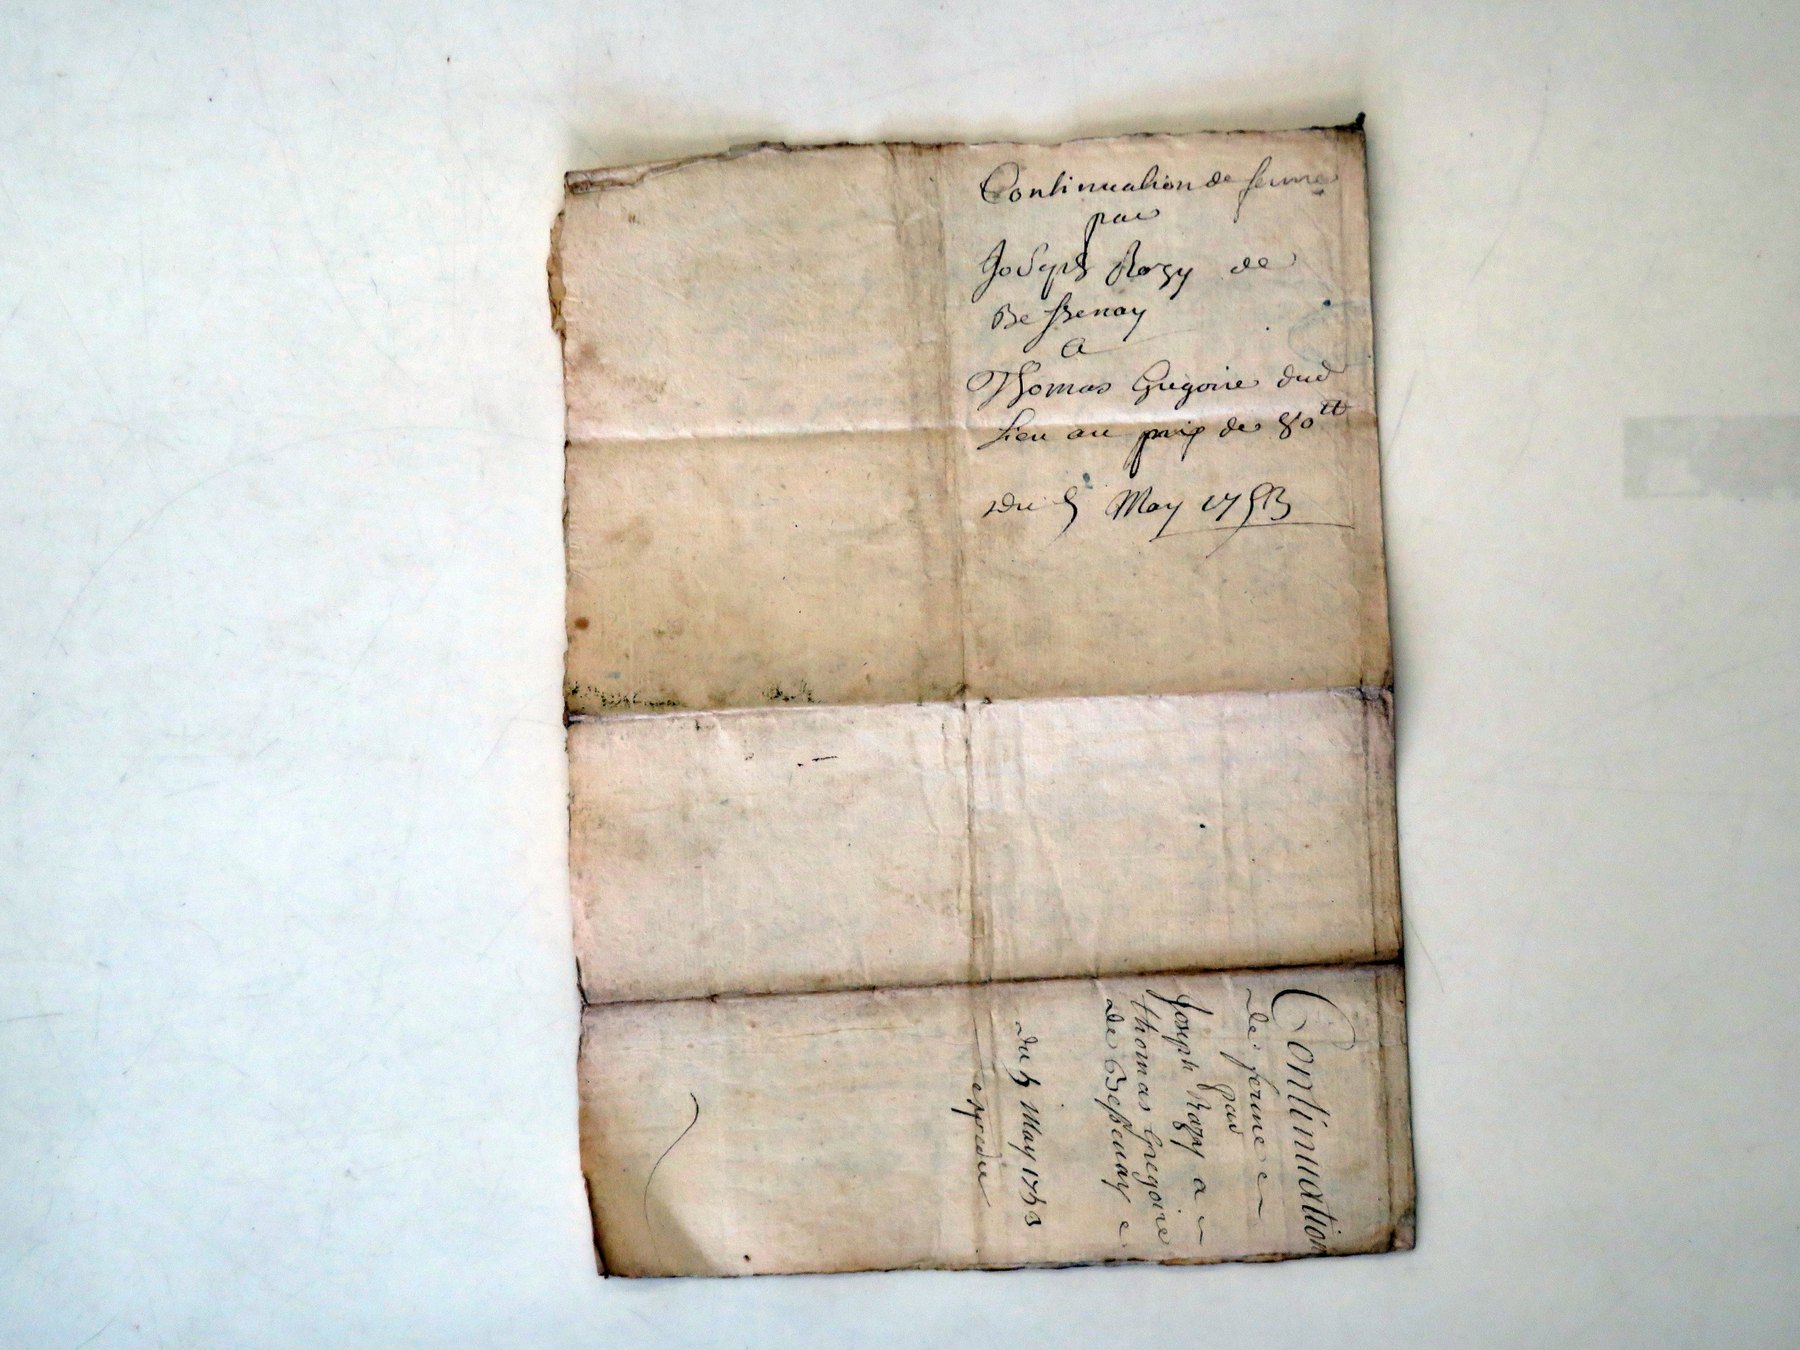 Continuation de ferme
par
Joseph Razy de
Bessenay
a
Thomas Gregoire dud
Lieu au prix de 80 tt
du 5 May 1753
Continuation
de ferme
par
Joseph Razy a
thomas Gregoire
de Bessenay
du 5 May 1753
expediée